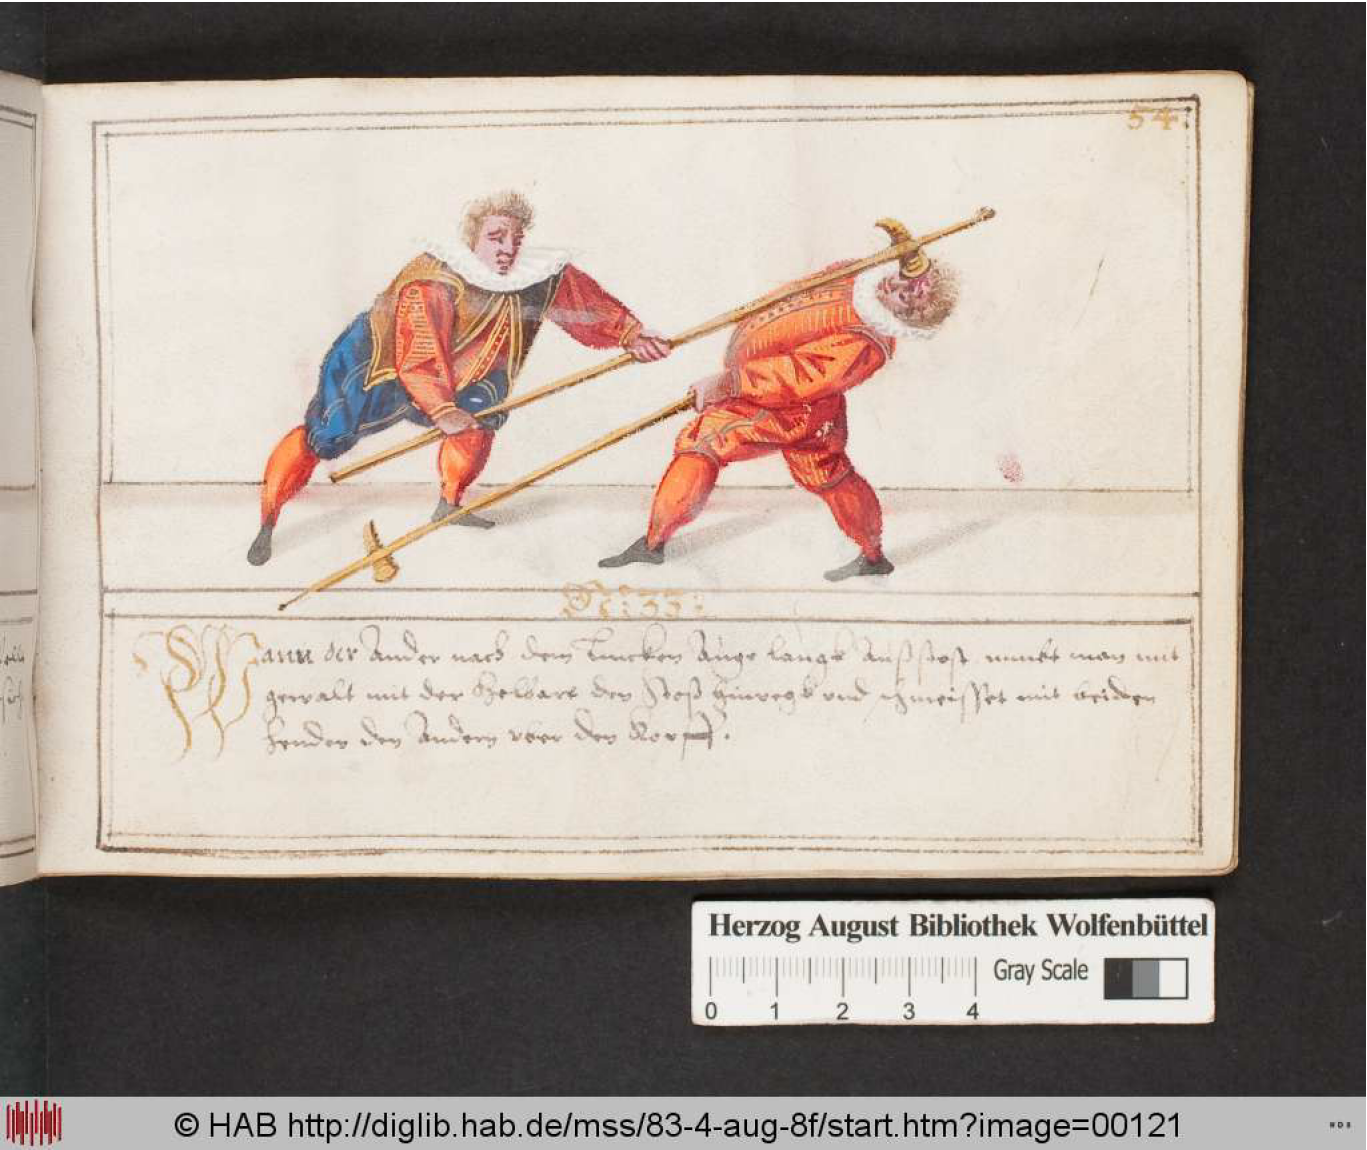 54.
N: 33:
Wann der Ander nach dem Lincken Auge langk Außstost nimbt man mit
gewalt mit der Helbart den stoß hinwegk vnd schmeisset mit beiden
henden den Andern vber den Kopff.
Herzog August Bibliothek Wolfenbüttel
Gray Scale
0 1 2 3 4
© HAB http://diglib.hab.de/mss/83-4-aug-8f/start.htm?image=00121